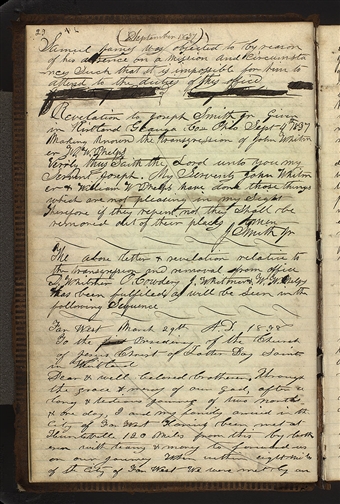 23
(September 1837)
Samuel James was objected to by reason
of his absence on a Mission and Circumsta
nces Such that it is impossible for him to
attend to the duties of this office
Revelation to Joseph Smith Jr Given
in Kirtland Geauga Co. Ohio Sept 4th 1837
Making known the transgression of John Whitm
er W. W. Phelps
Verily thus Saith the Lord unto you my
Servent Joseph. My Servents John Whitm
er & William W Phelps have done those things
which are not pleasing in my Sight
Therefore if they repent not they Shall be
removed out of their places. Amen
J Smith Jr
The above letter & revelation relative to
the transgression and removal from office
D. Whitmer O. Cowdery J. Whitmer & W. W. Phelps
has been fulfilled as will be Seen in the
following Sequence
Far West March 29th A.D. 1838
To the Presidency of the Church
of Jesus Christ of Latter Day Saints
in Kirtland
Dear & well beloved brotheren. Through
the grace & mercy of our God, after a
long & tedious journey of two months
& one day, I and my family arrived in the
City of Far West Having been met at
Huntsville 120 Miles from this by breth
eren with teams & money to forward us
on our journey When within eight miles
of the City of Far West We were met by an